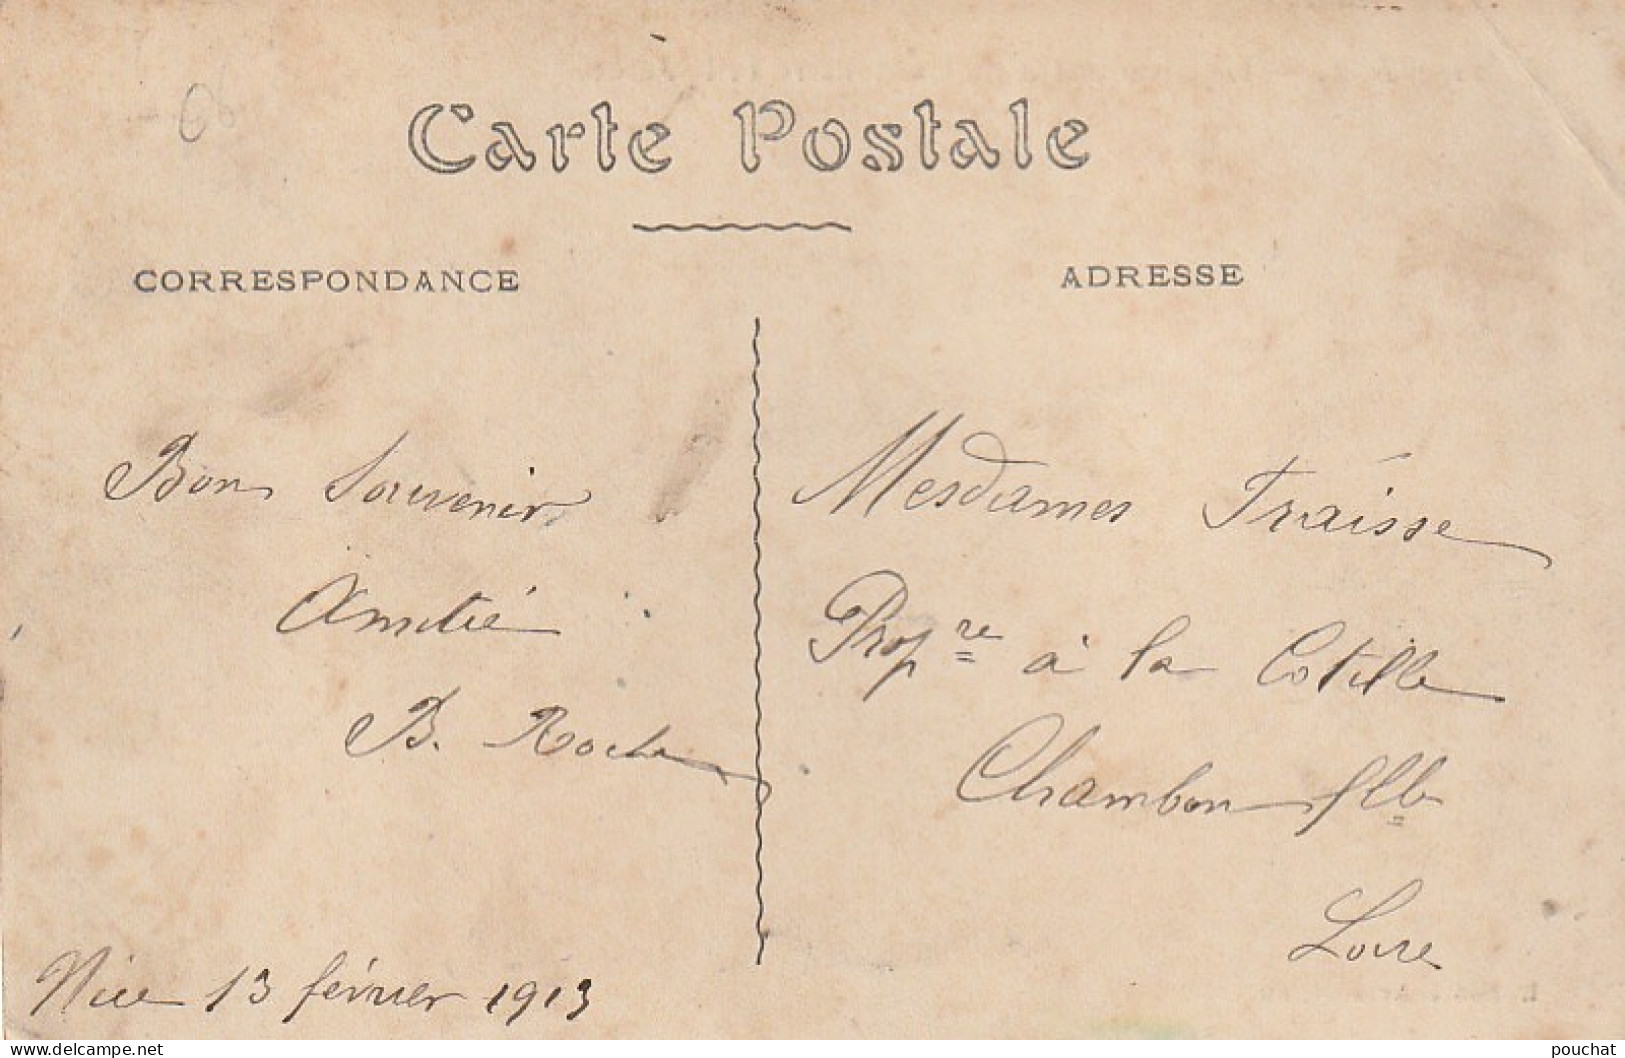 Carte Postale
CORRESPONDANCE
ADRESSE
Bon Souvenir
Amitié
B. Roche
Nice 13 février 1913
Mesdames Fraisse
Prop^re à la Cotille
Chambon flle
Loire
www.delcampe.net
pouchat